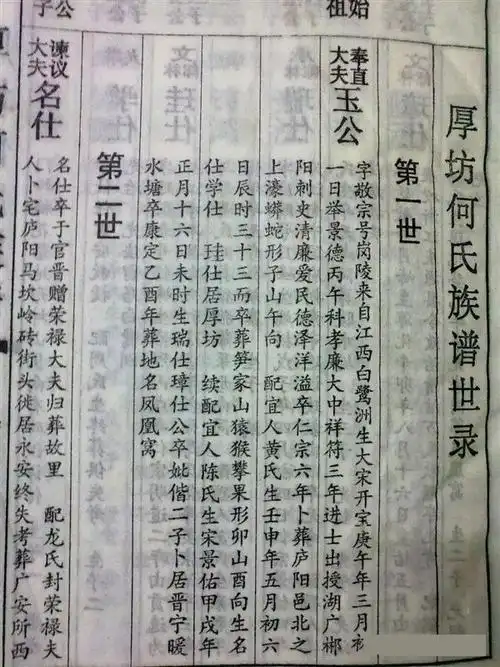 厚坊何氏族谱世录
始祖
第一世
奉直大夫玉公
字敬宗号岗陵来自江西白鹭洲生大宋开宝庚午年三月初
一日举景德丙午科孝廉大中祥符三年进士出授湖广郴
阳刺史清廉爱民德泽洋溢卒仁宗六年卜葬庐阳邑北之
上濠蟒蛇形子山午向 配宜人黄氏生壬申年五月初六
日辰时三十三而卒葬笋家山猿猴攀果形卯山酉向生名
仕学仕 珪仕居厚坊 续配宜人陈氏生宋景佑甲戌年
正月十六日未时生瑞仕璋仕公卒妣偕二子卜居晋宁暖
水塘卒康定乙酉年葬地名凤凰窝
第二世
谏议大夫名仕
名仕卒于官晋赠荣禄大夫归葬故里 配龙氏封荣禄夫
人卜宅庐阳马坎岭砖街头徙居永安终失考葬广安所西